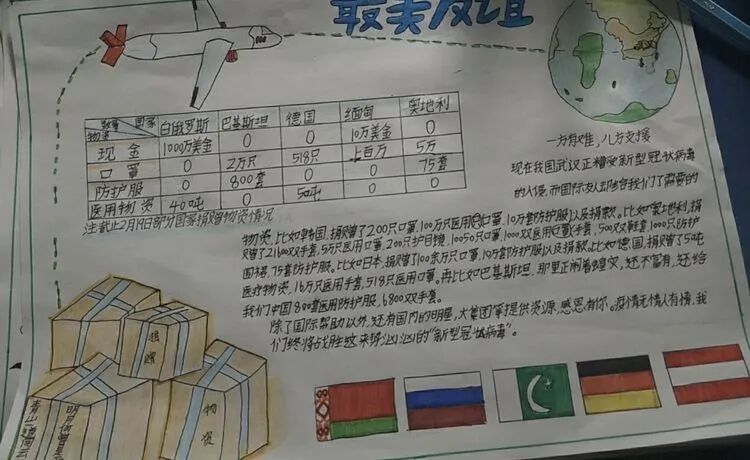 最美友谊
数量 国家 物资 白俄罗斯 巴基斯坦 德国 缅甸 奥地利
现金 1000万美金 0 0 10万美金 0
口罩 0 2万只 518只 上百万 5万
防护服 0 800套 0 0 75套
医用物资 40吨 0 50吨 0 0
注截止2月19日部分国家捐赠物资情况
一方有难，八方支援
现在我国武汉正精受新型冠状病毒
的入侵，而国际友人却给我们了需要的
物资，比如韩国，捐赠了200只口罩，100万只医用口罩，10万套防护服以及捐款。比如奥地利，捐
只赠了21600双手套，5万只医用口罩，200只护目镜，10050只口罩，1000双医用口罩手套，500双鞋套，1000只防护
围裙，75套防护服。比如日本，捐赠了100余万只口罩，10万套防护服以及捐款。比如德国，捐赠了50吨
医疗物资，16万只医用手套，518只医用口罩。再比如巴基斯坦，那里正闹着蝗灾，还不富有，还给
我们中国800套医用防护服，6800双手套。
除了国际帮助以外，还有国内的明星，大集团等提供资源，感恩有你。疫情无情人有情，我
们终将战胜这来势汹汹的“新型冠状病毒”。
物资
青山一道同云
明月何曾是